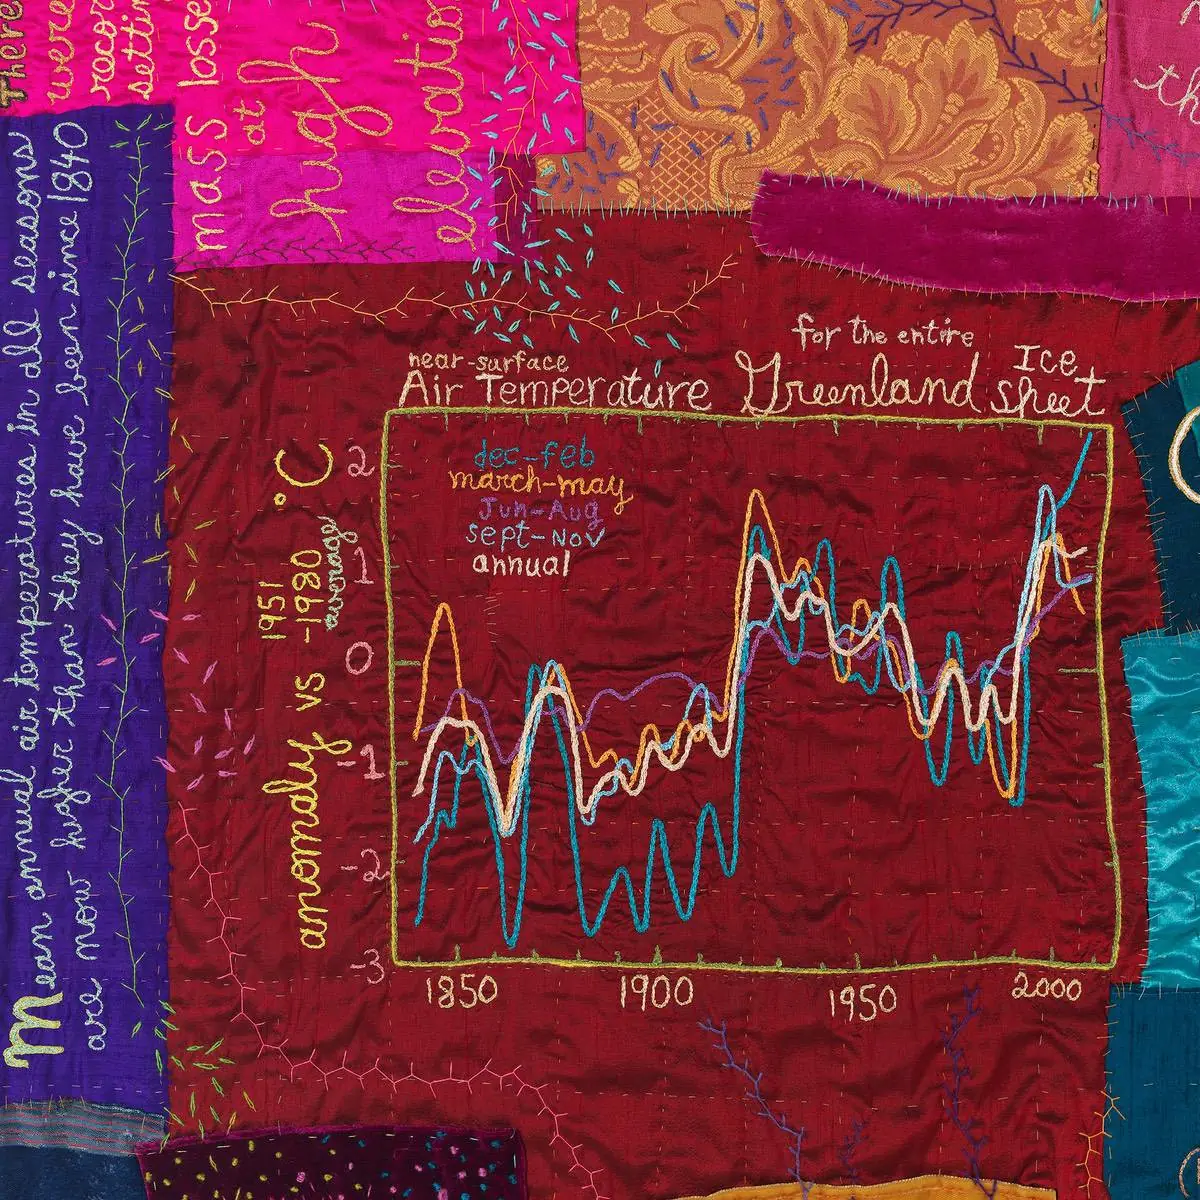 There
were
recor
settin
mass losse
at
high
elevation
th
Mean annual air temperatures in all seasons
are now higher than they have been since 1840
near-surface
Air Temperature
for the entire
Greenland Ice
sheet
dec-feb
march-may
Jun-Aug
sept-Nov
annual
anomaly vs 1951
-1980
average
°C
2
1
0
-1
-2
-3
1850 1900 1950 2000